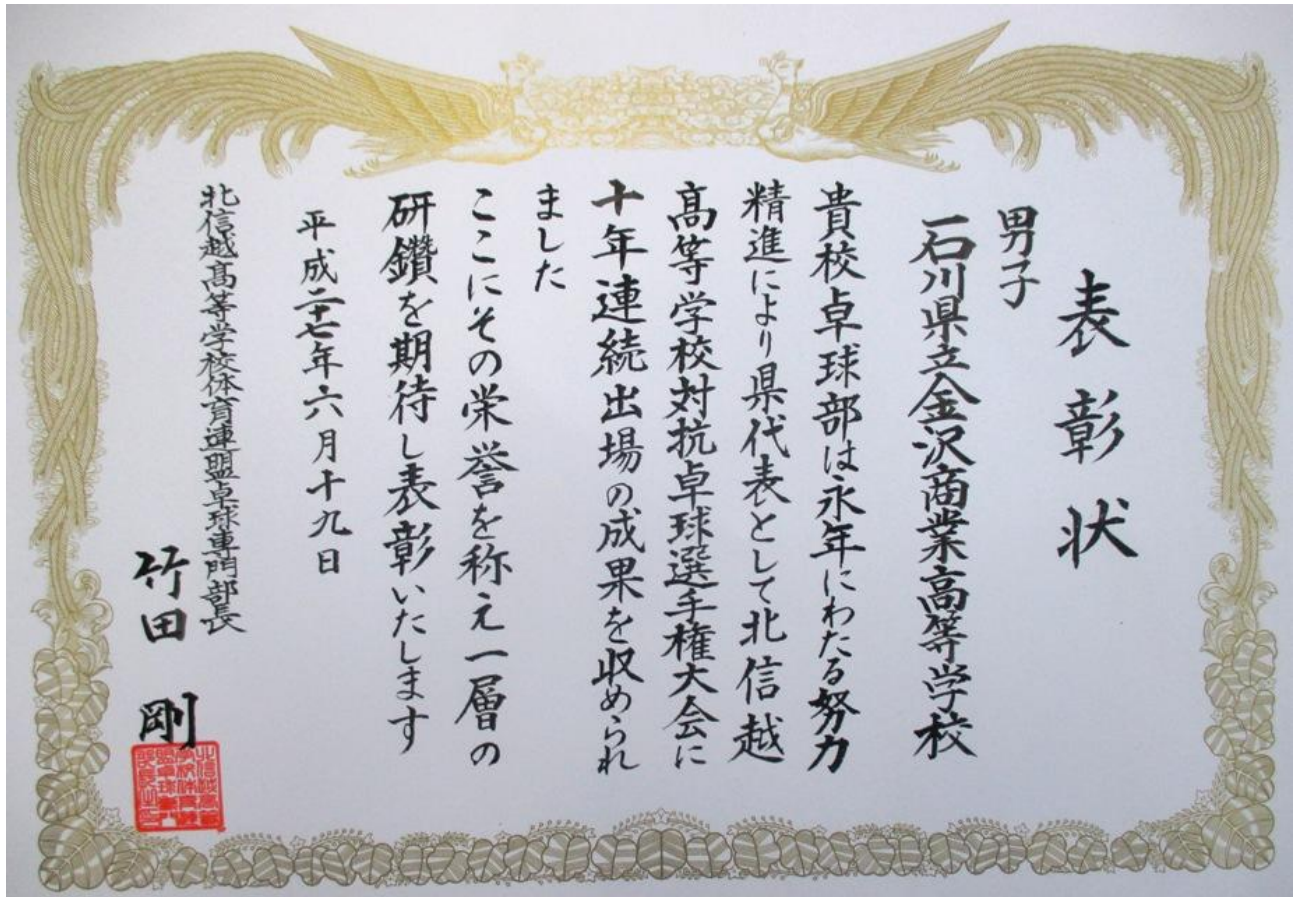 表彰状
男子
石川県立金沢商業高等学校
貴校卓球部は永年にわたる努力
精進により県代表として北信越
高等学校対抗卓球選手権大会に
十年連続出場の成果を収められ
ました
ここにその栄誉を称え一層の
研鑽を期待し表彰いたします
平成二十七年六月十九日
北信越高等学校体育連盟卓球専門部長
竹田 剛